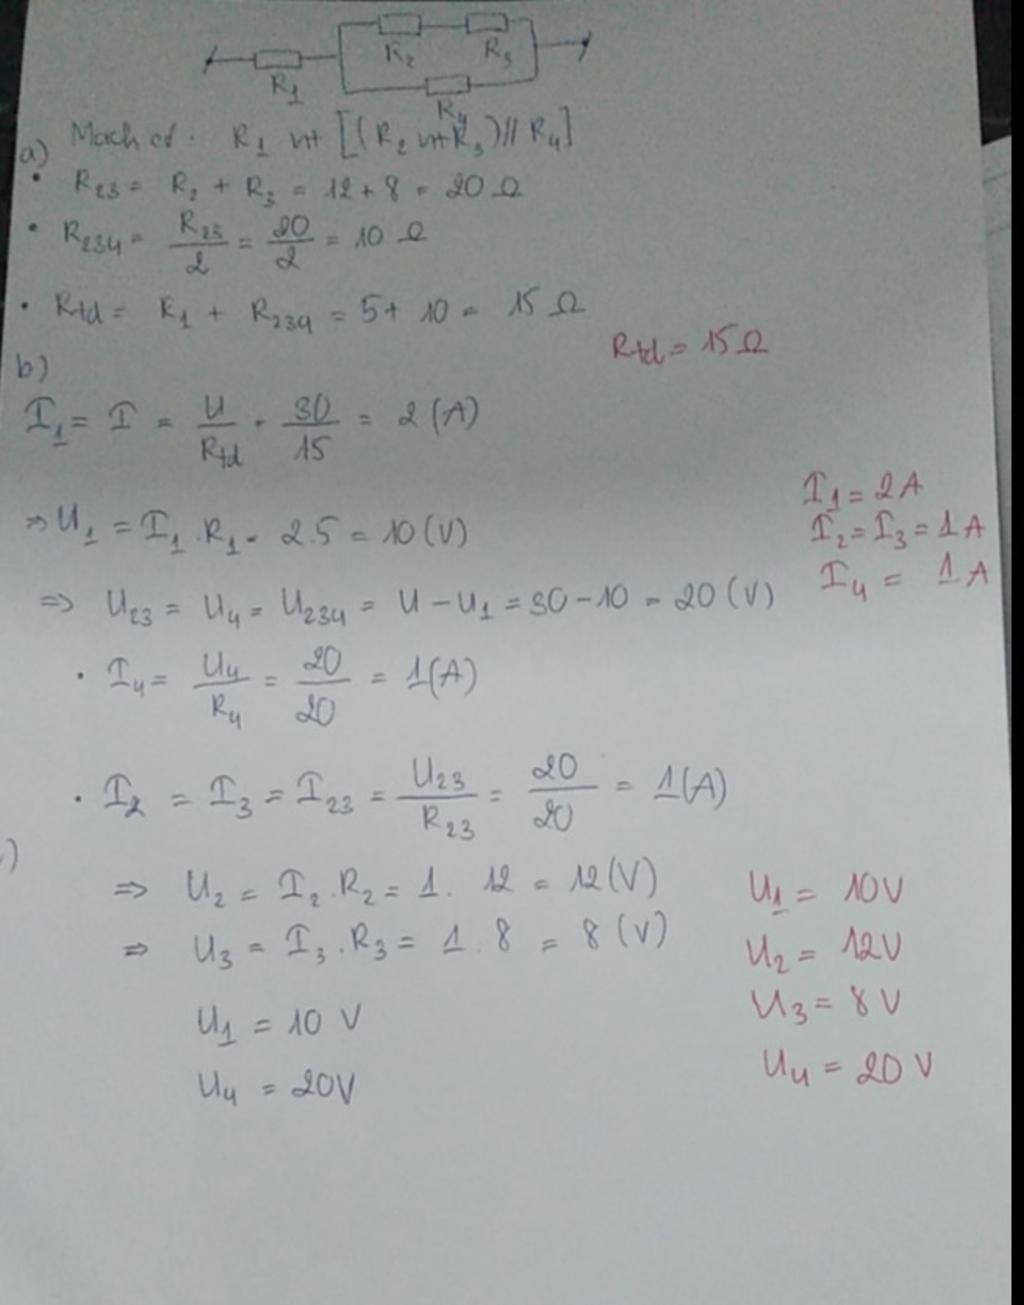 R₁ R₂ R₃
R₄
Mạch cd: R₁ nt [(R₂ nt R₃) // R₄]
a)
• R₂₃ = R₂ + R₃ = 12 + 8 = 20 Ω
• R₂₃₄ = R₂₃/2 = 20/2 = 10 Ω
• Rtd = R₁ + R₂₃₄ = 5 + 10 = 15 Ω
Rtd = 15 Ω
b)
I₁ = I = U/Rtd = 30/15 = 2 (A)
⇒ U₁ = I₁ . R₁ = 2.5 = 10 (V)
I₁ = 2A
I₂ = I₃ = 1A
I₄ = 1A
⇒ U₂₃ = U₄ = U₂₃₄ = U - U₁ = 30 - 10 = 20 (V)
• I₄ = U₄/R₄ = 20/20 = 1 (A)
• I₂ = I₃ = I₂₃ = U₂₃/R₂₃ = 20/20 = 1 (A)
⇒ U₂ = I₂ . R₂ = 1 . 12 = 12 (V)
⇒ U₃ = I₃ . R₃ = 1 . 8 = 8 (V)
U₁ = 10 V
U₄ = 20V
U₁ = 10V
U₂ = 12V
U₃ = 8V
U₄ = 20V